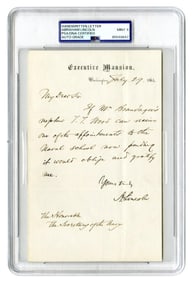 HANDWRITTEN LETTER
ABRAHAM LINCOLN
PSA/DNA CERTIFIED
AUTO GRADE
MINT 9
Executive Mansion,
July 29, 186
My Dear Sir
If Mr
nephew T. T. can receive
one of the appointments to the
Naval school now pending
it would oblige and gratify
me.
Yours truly
A. Lincoln
The Honorable
The Secretary of the Navy